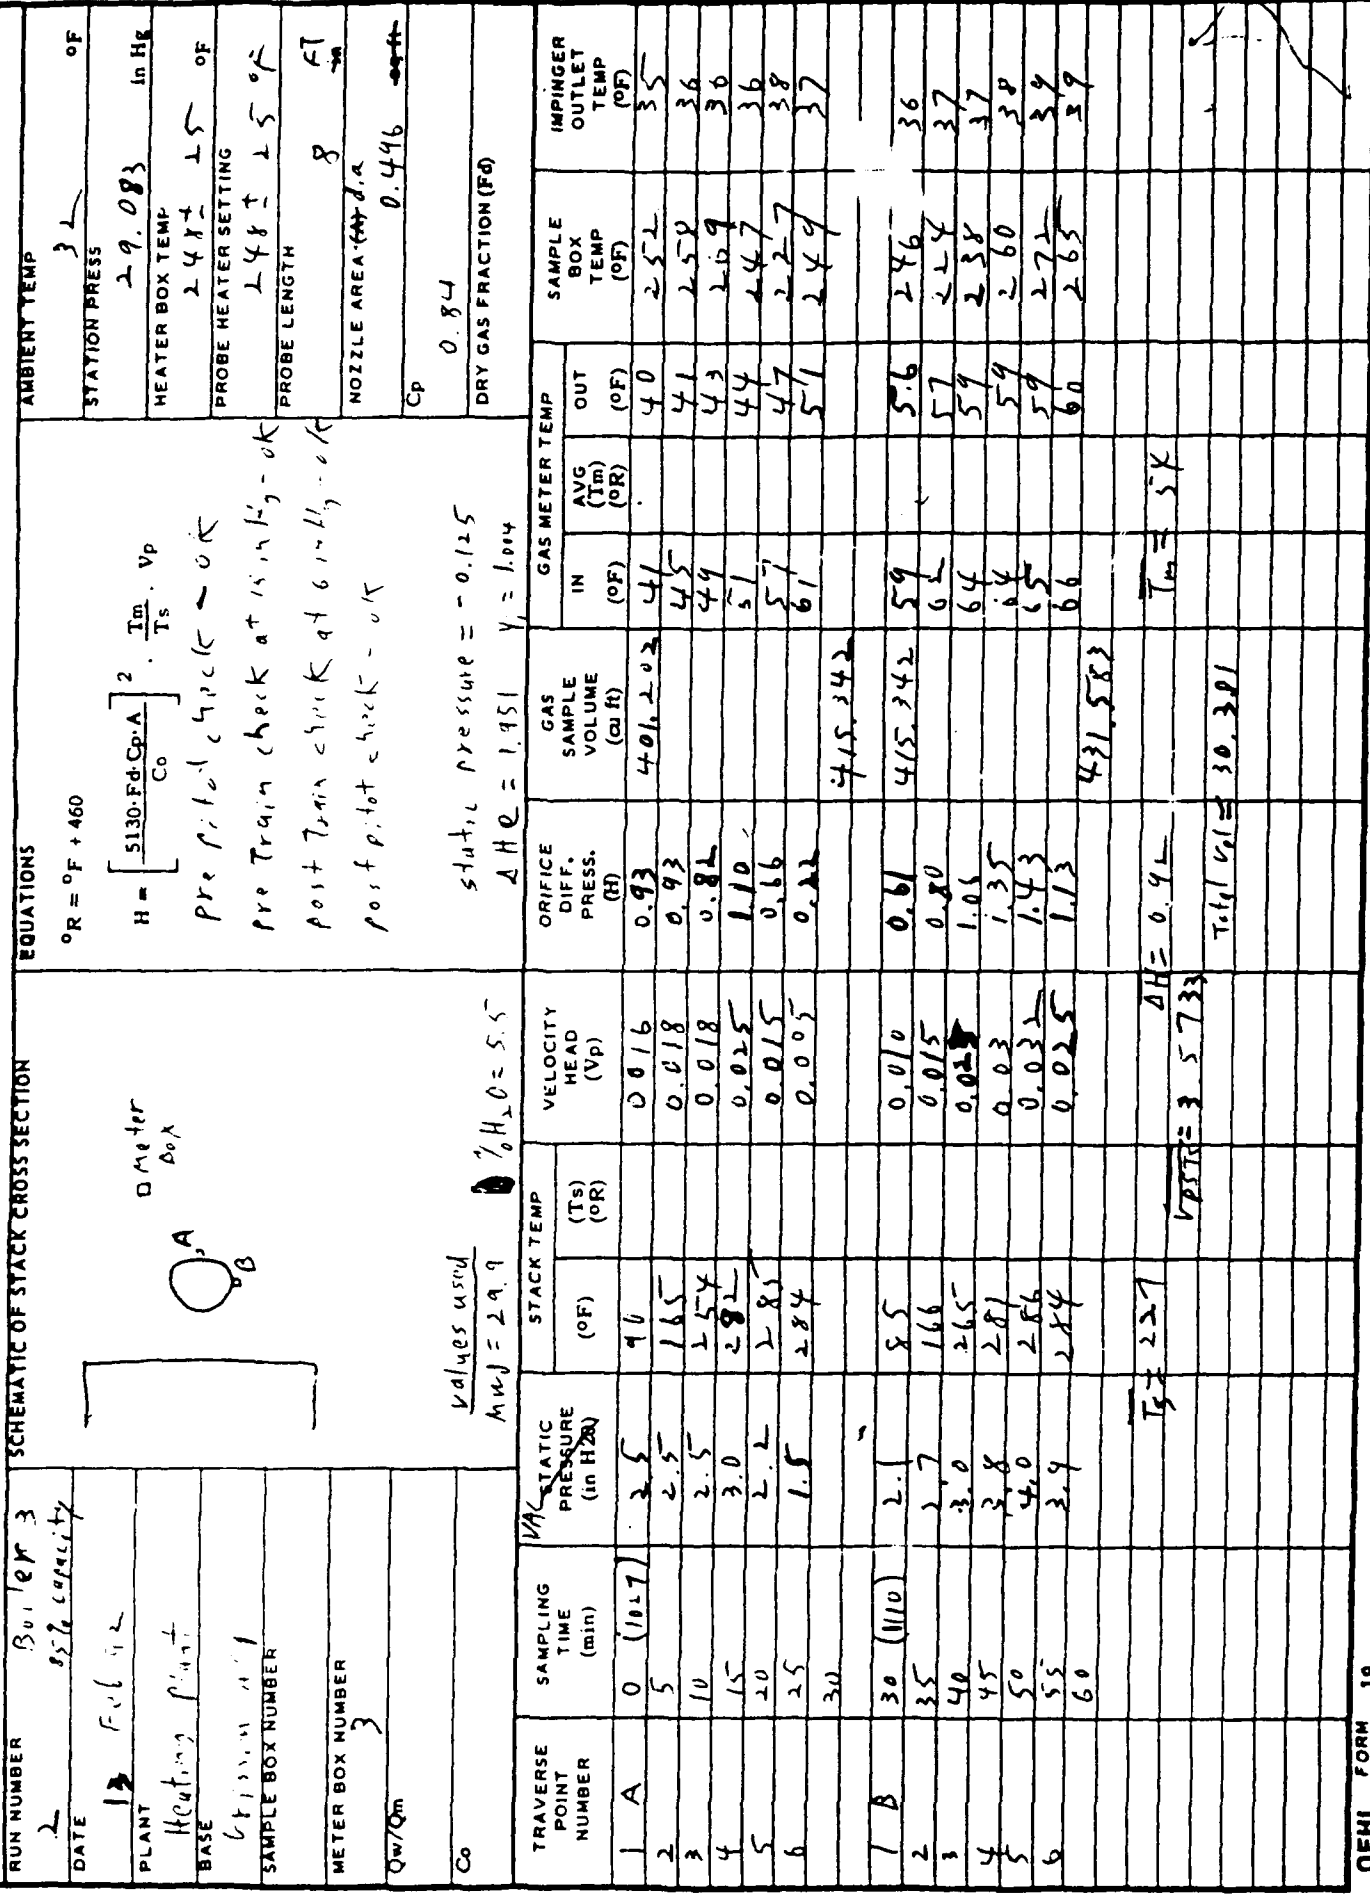 RUN NUMBER
2 Boiler 3
85% capacity
DATE
12 Feb 92
PLANT
Heating Plant
BASE
SAMPLE BOX NUMBER
METER BOX NUMBER
3
Qw/Qm
Co
SCHEMATIC OF STACK CROSS SECTION
Meter
Box
A
B
values used
Mwd = 29.9 % H2O = 5.5
EQUATIONS
°R = °F + 460
H = [ 5130·Fd·Cp·A / Co ] 2 · Tm / Ts · Vp
pre pitot check - ok
pre Train check at 15 in Hg - ok
post Train check at 6 in Hg - ok
post pitot check - ok
static pressure = -0.125
ΔH@ = 1.951 Y = 1.004
AMBIENT TEMP
32 °F
STATION PRESS
29.083 in Hg
HEATER BOX TEMP
248 ± 25 °F
PROBE HEATER SETTING
248 ± 25 °F
PROBE LENGTH
8 FT in
NOZZLE AREA (A) dia
0.496 sq ft
Cp
0.84
DRY GAS FRACTION (Fd)
TRAVERSE POINT NUMBER
SAMPLING TIME (min)
VAC STATIC PRESSURE (in H20)
STACK TEMP
(°F)
(Ts) (°R)
VELOCITY HEAD (Vp)
ORIFICE DIFF. PRESS. (H)
GAS SAMPLE VOLUME (cu ft)
GAS METER TEMP
IN (°F)
AVG (Tm) (°R)
OUT (°F)
SAMPLE BOX TEMP (°F)
IMPINGER OUTLET TEMP (°F)
1 A 0 (1027) 2.5 90 0.016 0.93 401.202 41 40 252 35
2 5 2.5 165 0.018 0.93 45 41 258 36
3 10 2.5 254 0.018 0.82 49 43 269 36
4 15 3.0 282 0.025 1.10 51 44 247 36
5 20 2.2 285 0.015 0.66 57 47 227 38
6 25 1.5 284 0.005 0.22 61 51 249 37
30 415.342
1 B 30 (1110) 2.1 85 0.010 0.61 415.342 59 56 246 36
2 35 2.7 166 0.015 0.80 62 57 224 37
3 40 3.0 265 64 59 238 37
4 45 3.8 281 0.03 1.35 64 59 260 38
5 50 4.0 286 0.032 1.43 65 59 272 39
6 55 3.9 284 0.025 1.13 66 60 265 39
60 431.583
Ts = 227 ΔH = 0.92 Tm = 54
VpsTs = 3.5733
Total Vol = 30.381
OEHL FORM